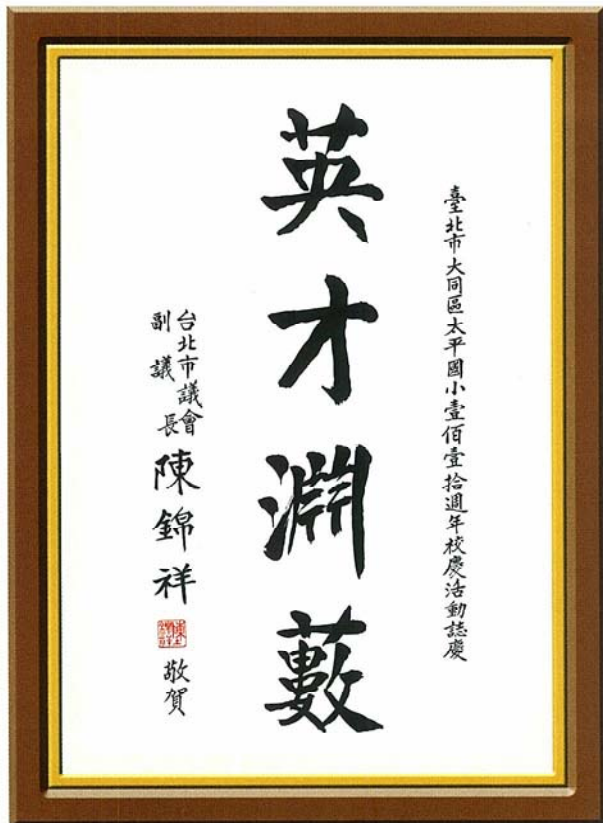 臺北市大同區太平國小壹佰壹拾週年校慶活動誌慶
英才淵藪
台北市議會
副議長
陳錦祥
敬賀